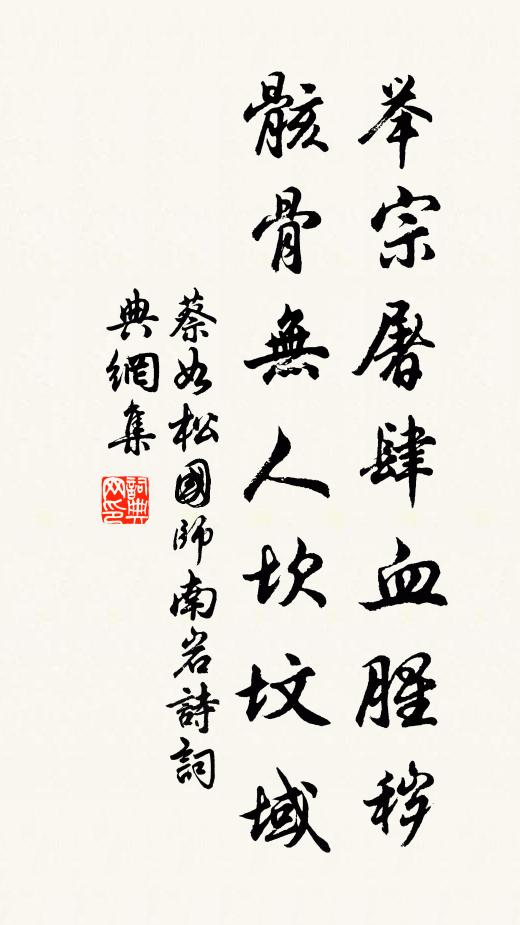 举宗屠肆血腥秽
骸骨無人坎坟域
蔡如松國師南岩詩詞
典網集
詞典
网印